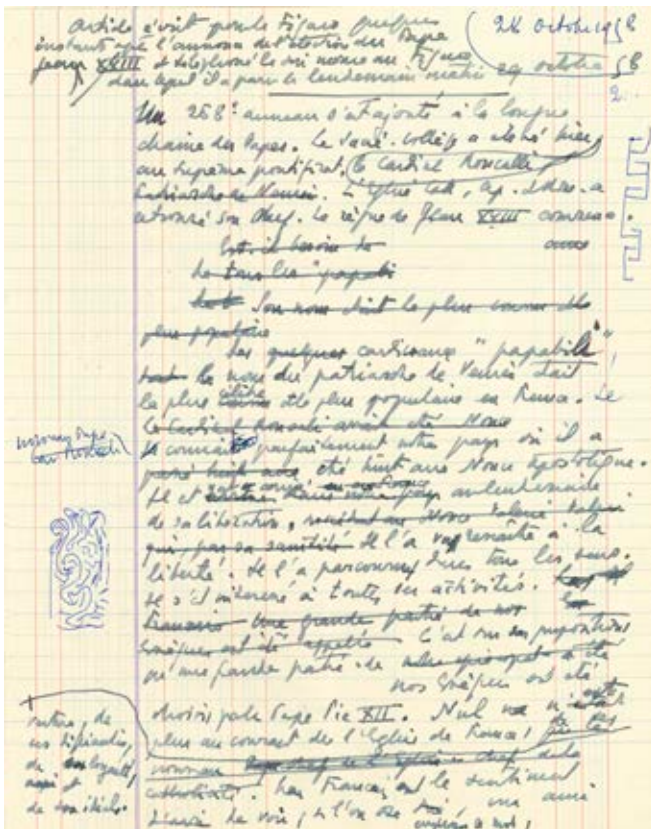 Article écrit pour le Figaro quelques
instants après l'annonce de l'élection du Pape
Jean XXIII et téléphoné le soir même au Figaro
dans lequel il a paru le lendemain matin 29 octobre 58
28 Octobre 1958
2.
Un 258e anneau s'est ajouté à la longue
chaîne des Papes. Le Sacré-Collège a élevé hier,
au suprême pontificat, le Cardinal Roncalli,
Patriarche de Venise. L'Eglise cath, ap. a
intronisé son Chef. Le règne de Jean XXIII commence.
Est-il besoin de
De tous les "papabili
Son nom était le plus connu et le
plus populaire
Des quelques cardinaux "papabili",
le nom du patriarche de Venise était
le plus célèbre et le plus populaire en France. Le
le Cardinal Roncalli avait été Nonce
connaît parfaitement notre pays où il a
passé huit ans été huit ans Nonce apostolique.
Il est arrivé au lendemain
de sa libération,
qui, par sa Il l'a vu renaître à la
liberté. Il l'a parcouru dans tous les sens.
Il s'est intéressé à toutes ses activités.
Une grande partie de nos
évêques ont été C'est sur ses propositions
qu'une grande partie de
nos évêques ont été
choisis par le Pape Pie XII. Nul n'
plus au courant de l'Eglise de France,
nouveau
catholicité. Les Français ont le sentiment
d'avoir de voir, si l'on ose un ami
nouveau Pape
Card Roncalli
de
ses difficultés,
de sa loyauté,
aussi et
de son